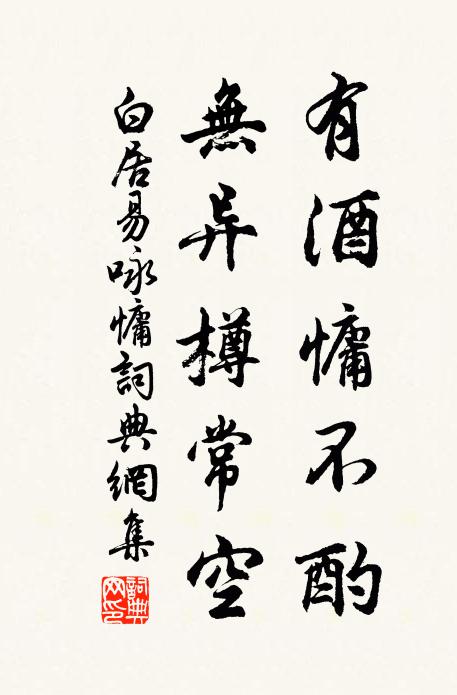 有酒慵不酌
無异樽常空
白居易咏慵詞典網集
詞典網印